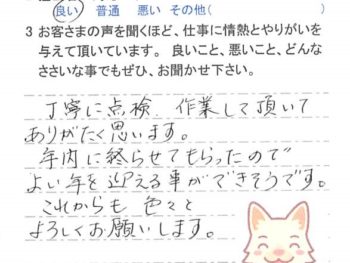 良い 普通 悪い その他(
3 お客さまの声を聞くほど、仕事に情熱とやりがいを
与えて頂いています。 良いこと、悪いこと、どんな
ささいな事でもぜひ、お聞かせ下さい。
丁寧に点検 作業して頂いて
ありがたく思います。
年内に終らせてもらったので
よい年を迎える事ができそうです。
これからも 色々と
よろしくお願いします。